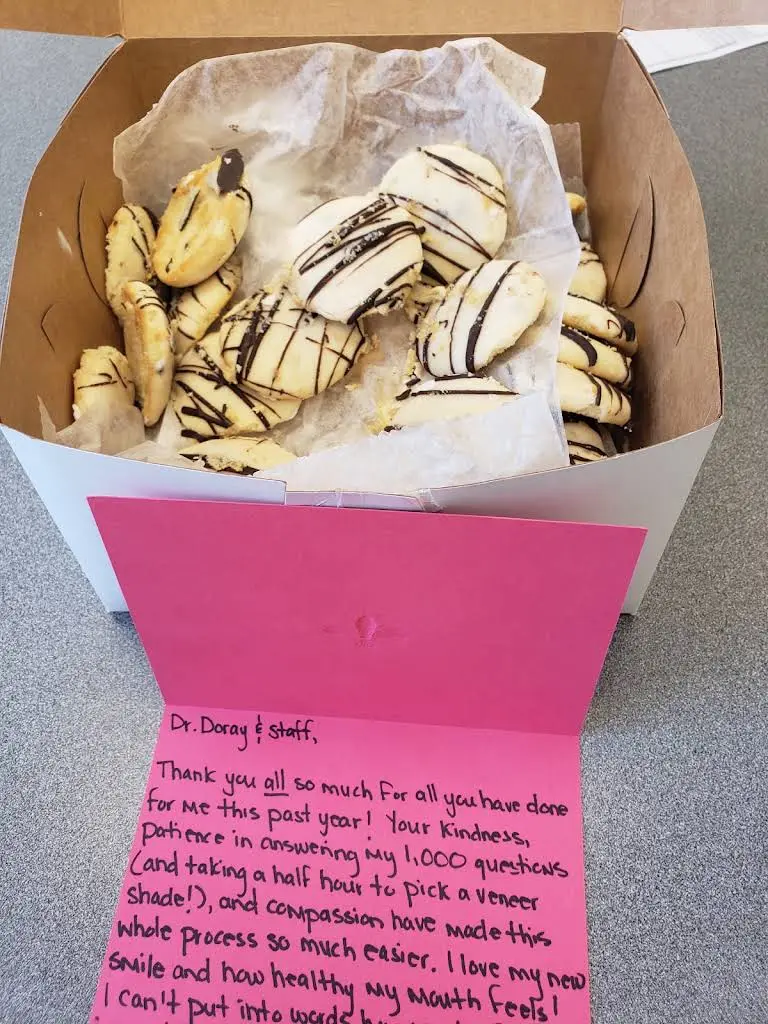 Dr. Doray & staff,
Thank you all so much for all you have done
for me this past year! Your kindness,
patience in answering my 1,000 questions
(and taking a half hour to pick a veneer
shade!), and compassion have made this
whole process so much easier. I love my new
smile and how healthy my mouth feels!
I can't put into words